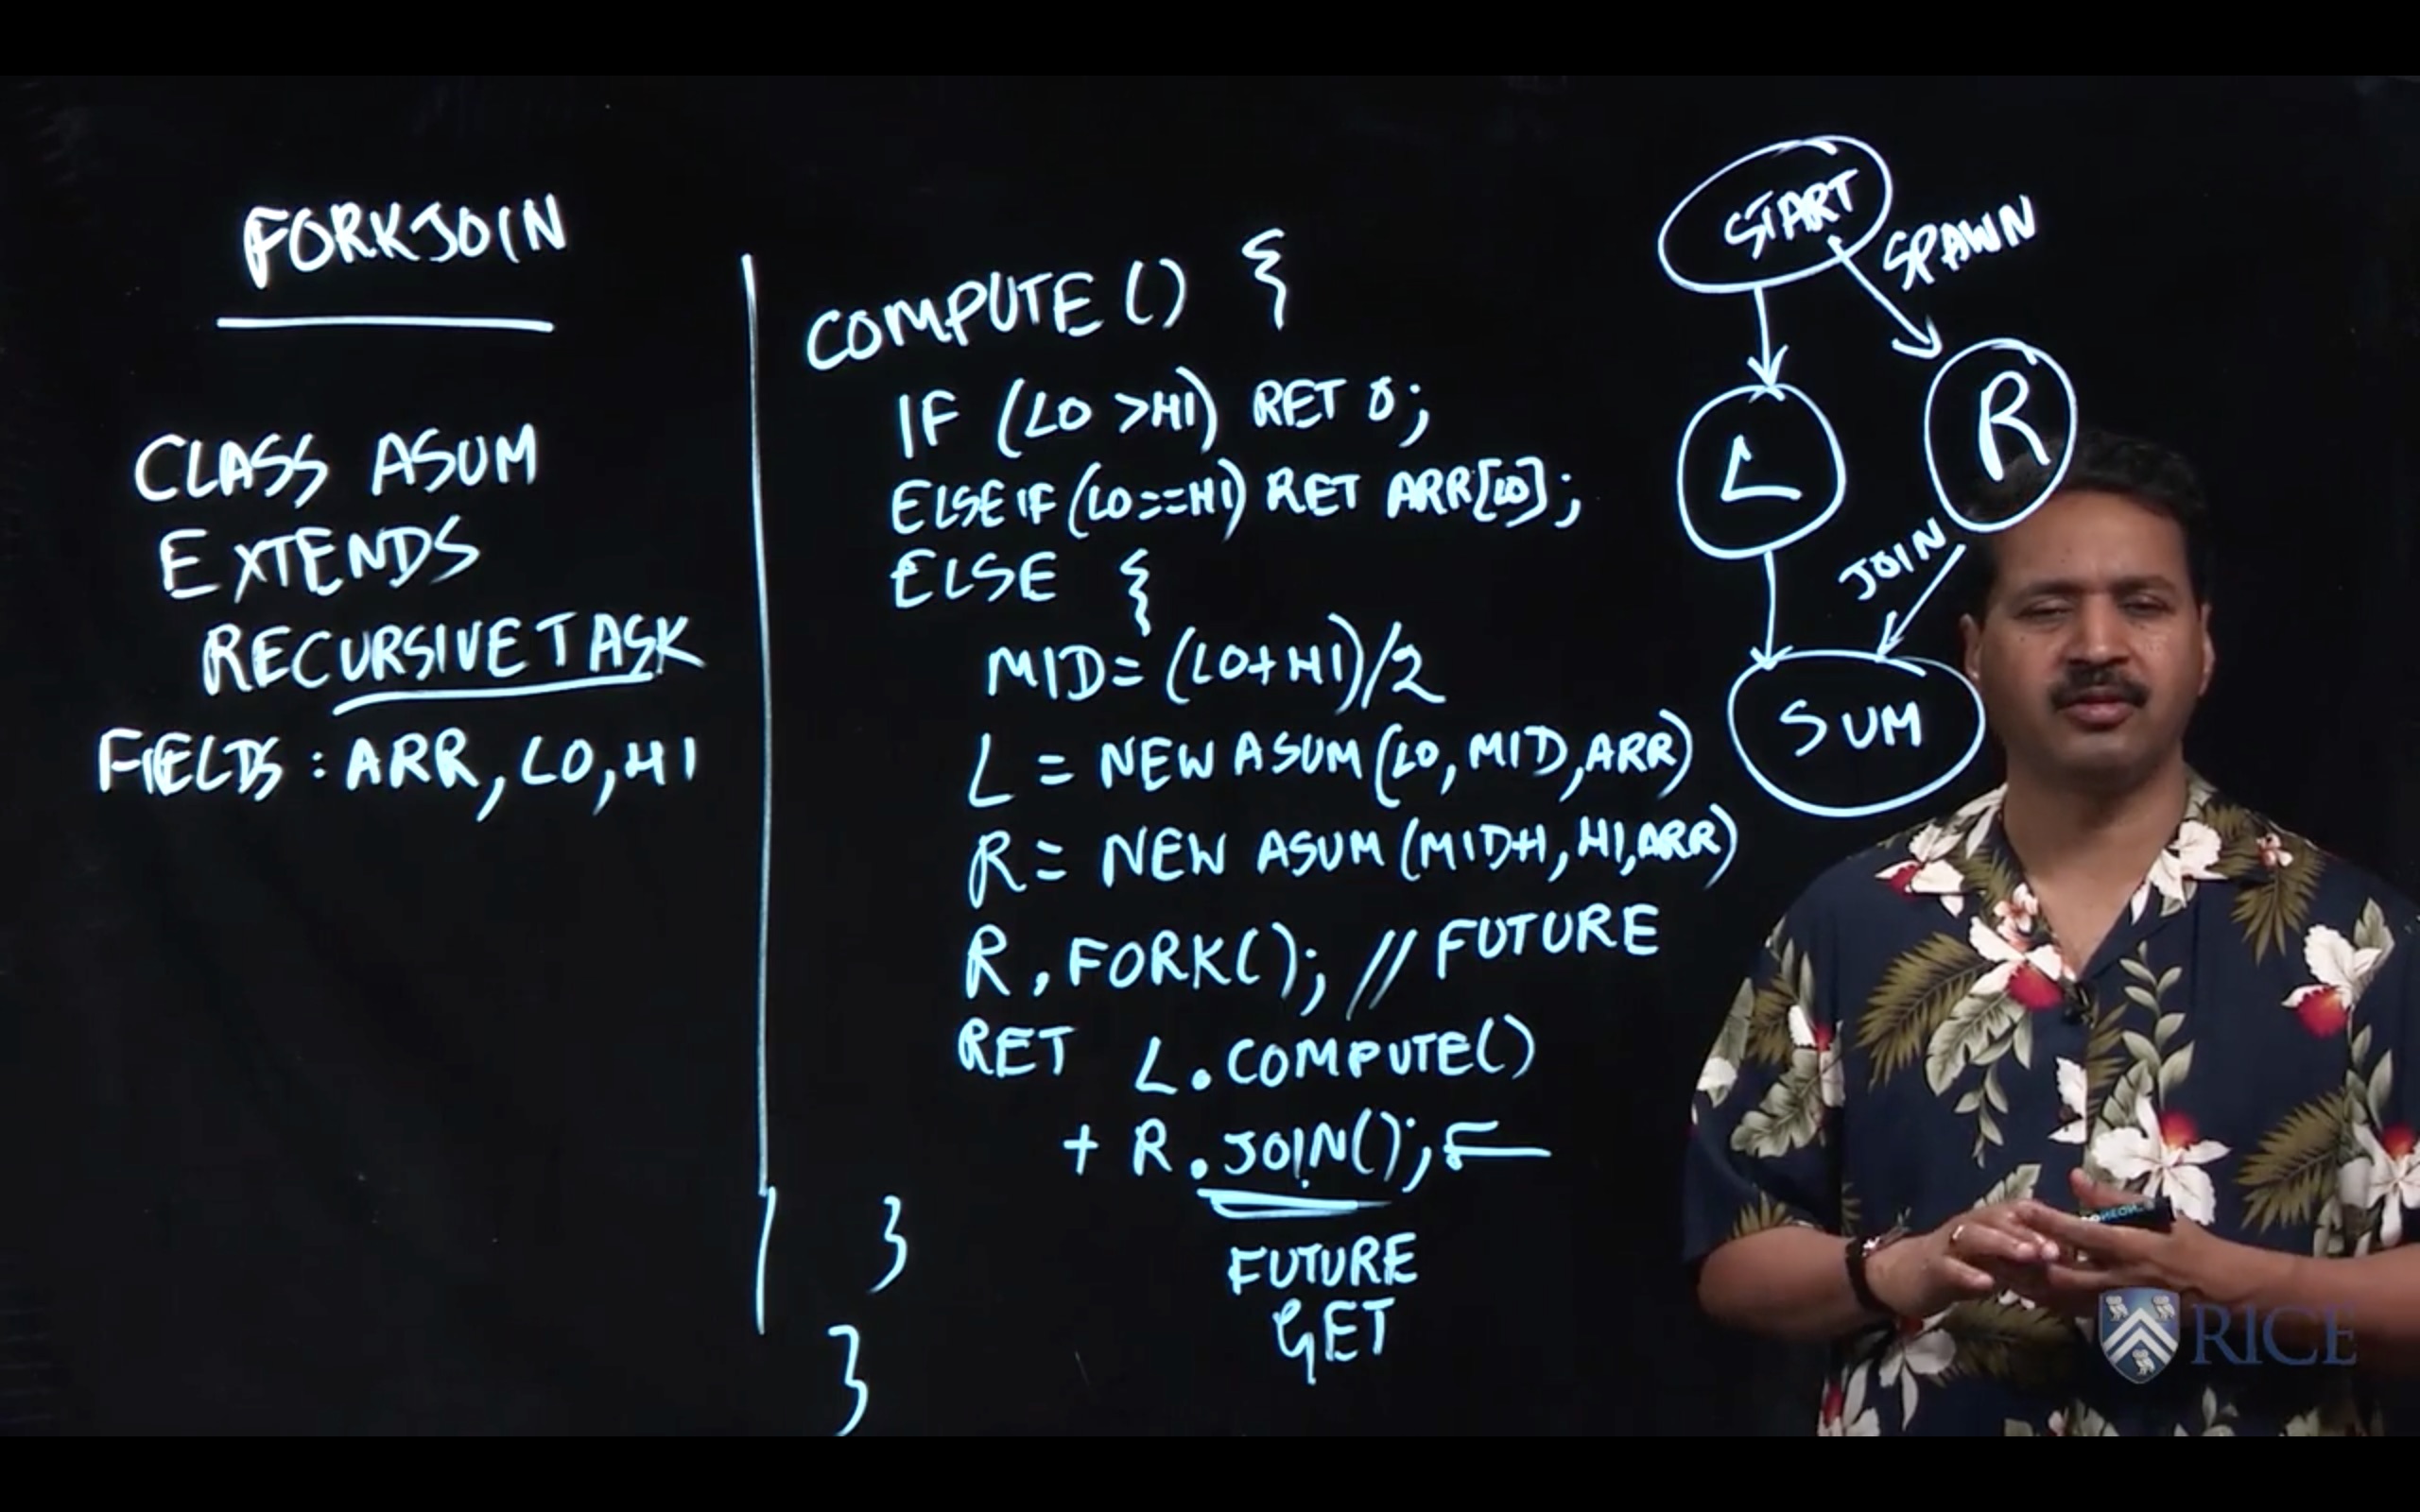 FORKJOIN
CLASS ASUM
EXTENDS
RECURSIVETASK
FIELDS : ARR, LO, HI
COMPUTE () {
IF (LO >HI) RET 0;
ELSE IF (LO==HI) RET ARR[LO];
ELSE {
MID= (LO+HI)/2
L = NEW ASUM (LO, MID, ARR)
R = NEW ASUM (MID+1, HI, ARR)
R.FORK(); // FUTURE
RET L.COMPUTE()
+ R.JOIN();
FUTURE
GET
}
}
START
SPAWN
L
R
JOIN
SUM
RICE